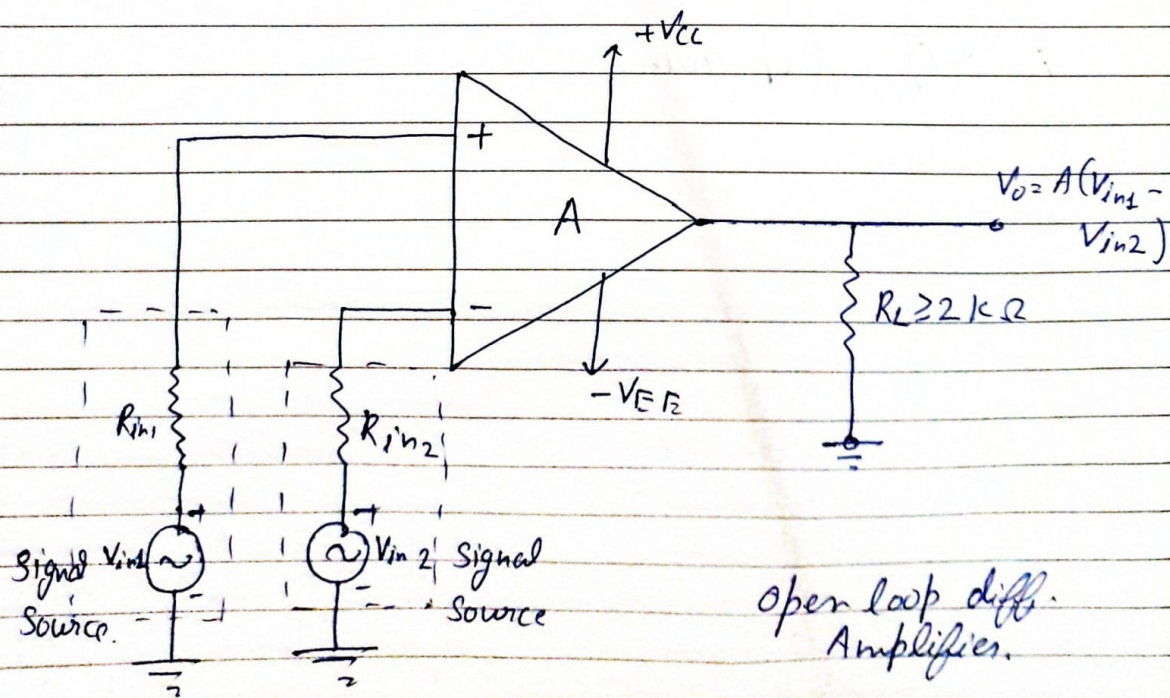 +VCC
+
A
V0 = A(Vin1 -
Vin2)
-
RL ≥ 2 kΩ
-VEE
Rin1
Rin2
+
+
Signal Vin1
Source.
-
Vin2 Signal
Source
-
open loop diff.
Amplifier.